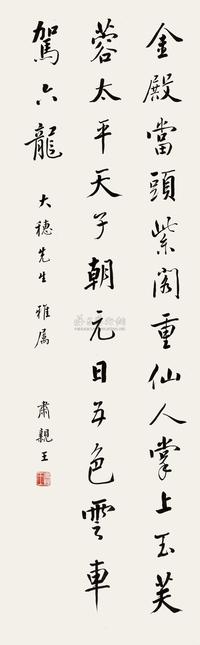 金殿當頭紫閣重仙人掌上玉芙
蓉太平天子朝元日五色雲車
駕六龍
大穗先生 雅屬
肅親王